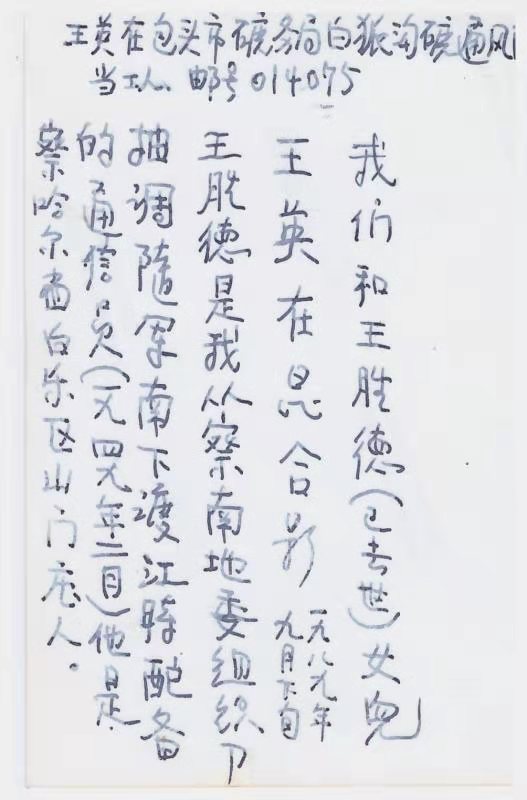 王英在包头市矿务局白狐沟矿通风
当工人. 邮号014075
我们和王胜德(已去世)女兒
王英在昆合影 一九八九年
九月下旬
王胜德是我从察南地委组织卩
抽调隨军南下渡江時配备
的通信员(一九四九年二月)他是
察哈尔省白乐区山门庄人。